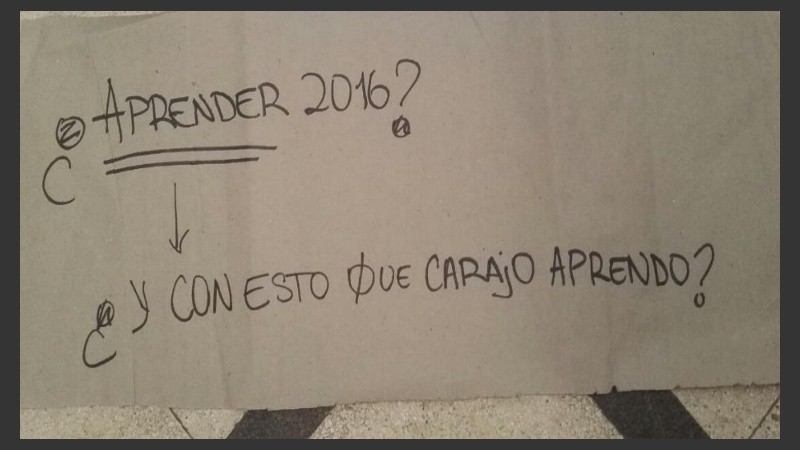 ¿APRENDER 2016?
¿Y CON ESTO QUE CARAJO APRENDO?